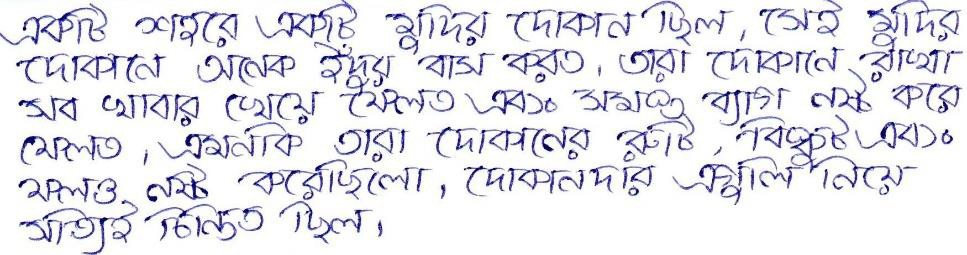 একটি শহরে একটি মুদির দোকান ছিল, সেই মুদির
দোকানে অনেক ইঁদুর বাস করত, তারা দোকানে রাখা
সব খাবার খেয়ে ফেলত এবং সমস্ত ব্যাগ নষ্ট করে
ফেলত, এমনকি তারা দোকানের রুটি, বিস্কুট এবং
ফলও নষ্ট করেছিলো, দোকানদার এগুলি নিয়ে
সত্যিই চিন্তিত ছিল,